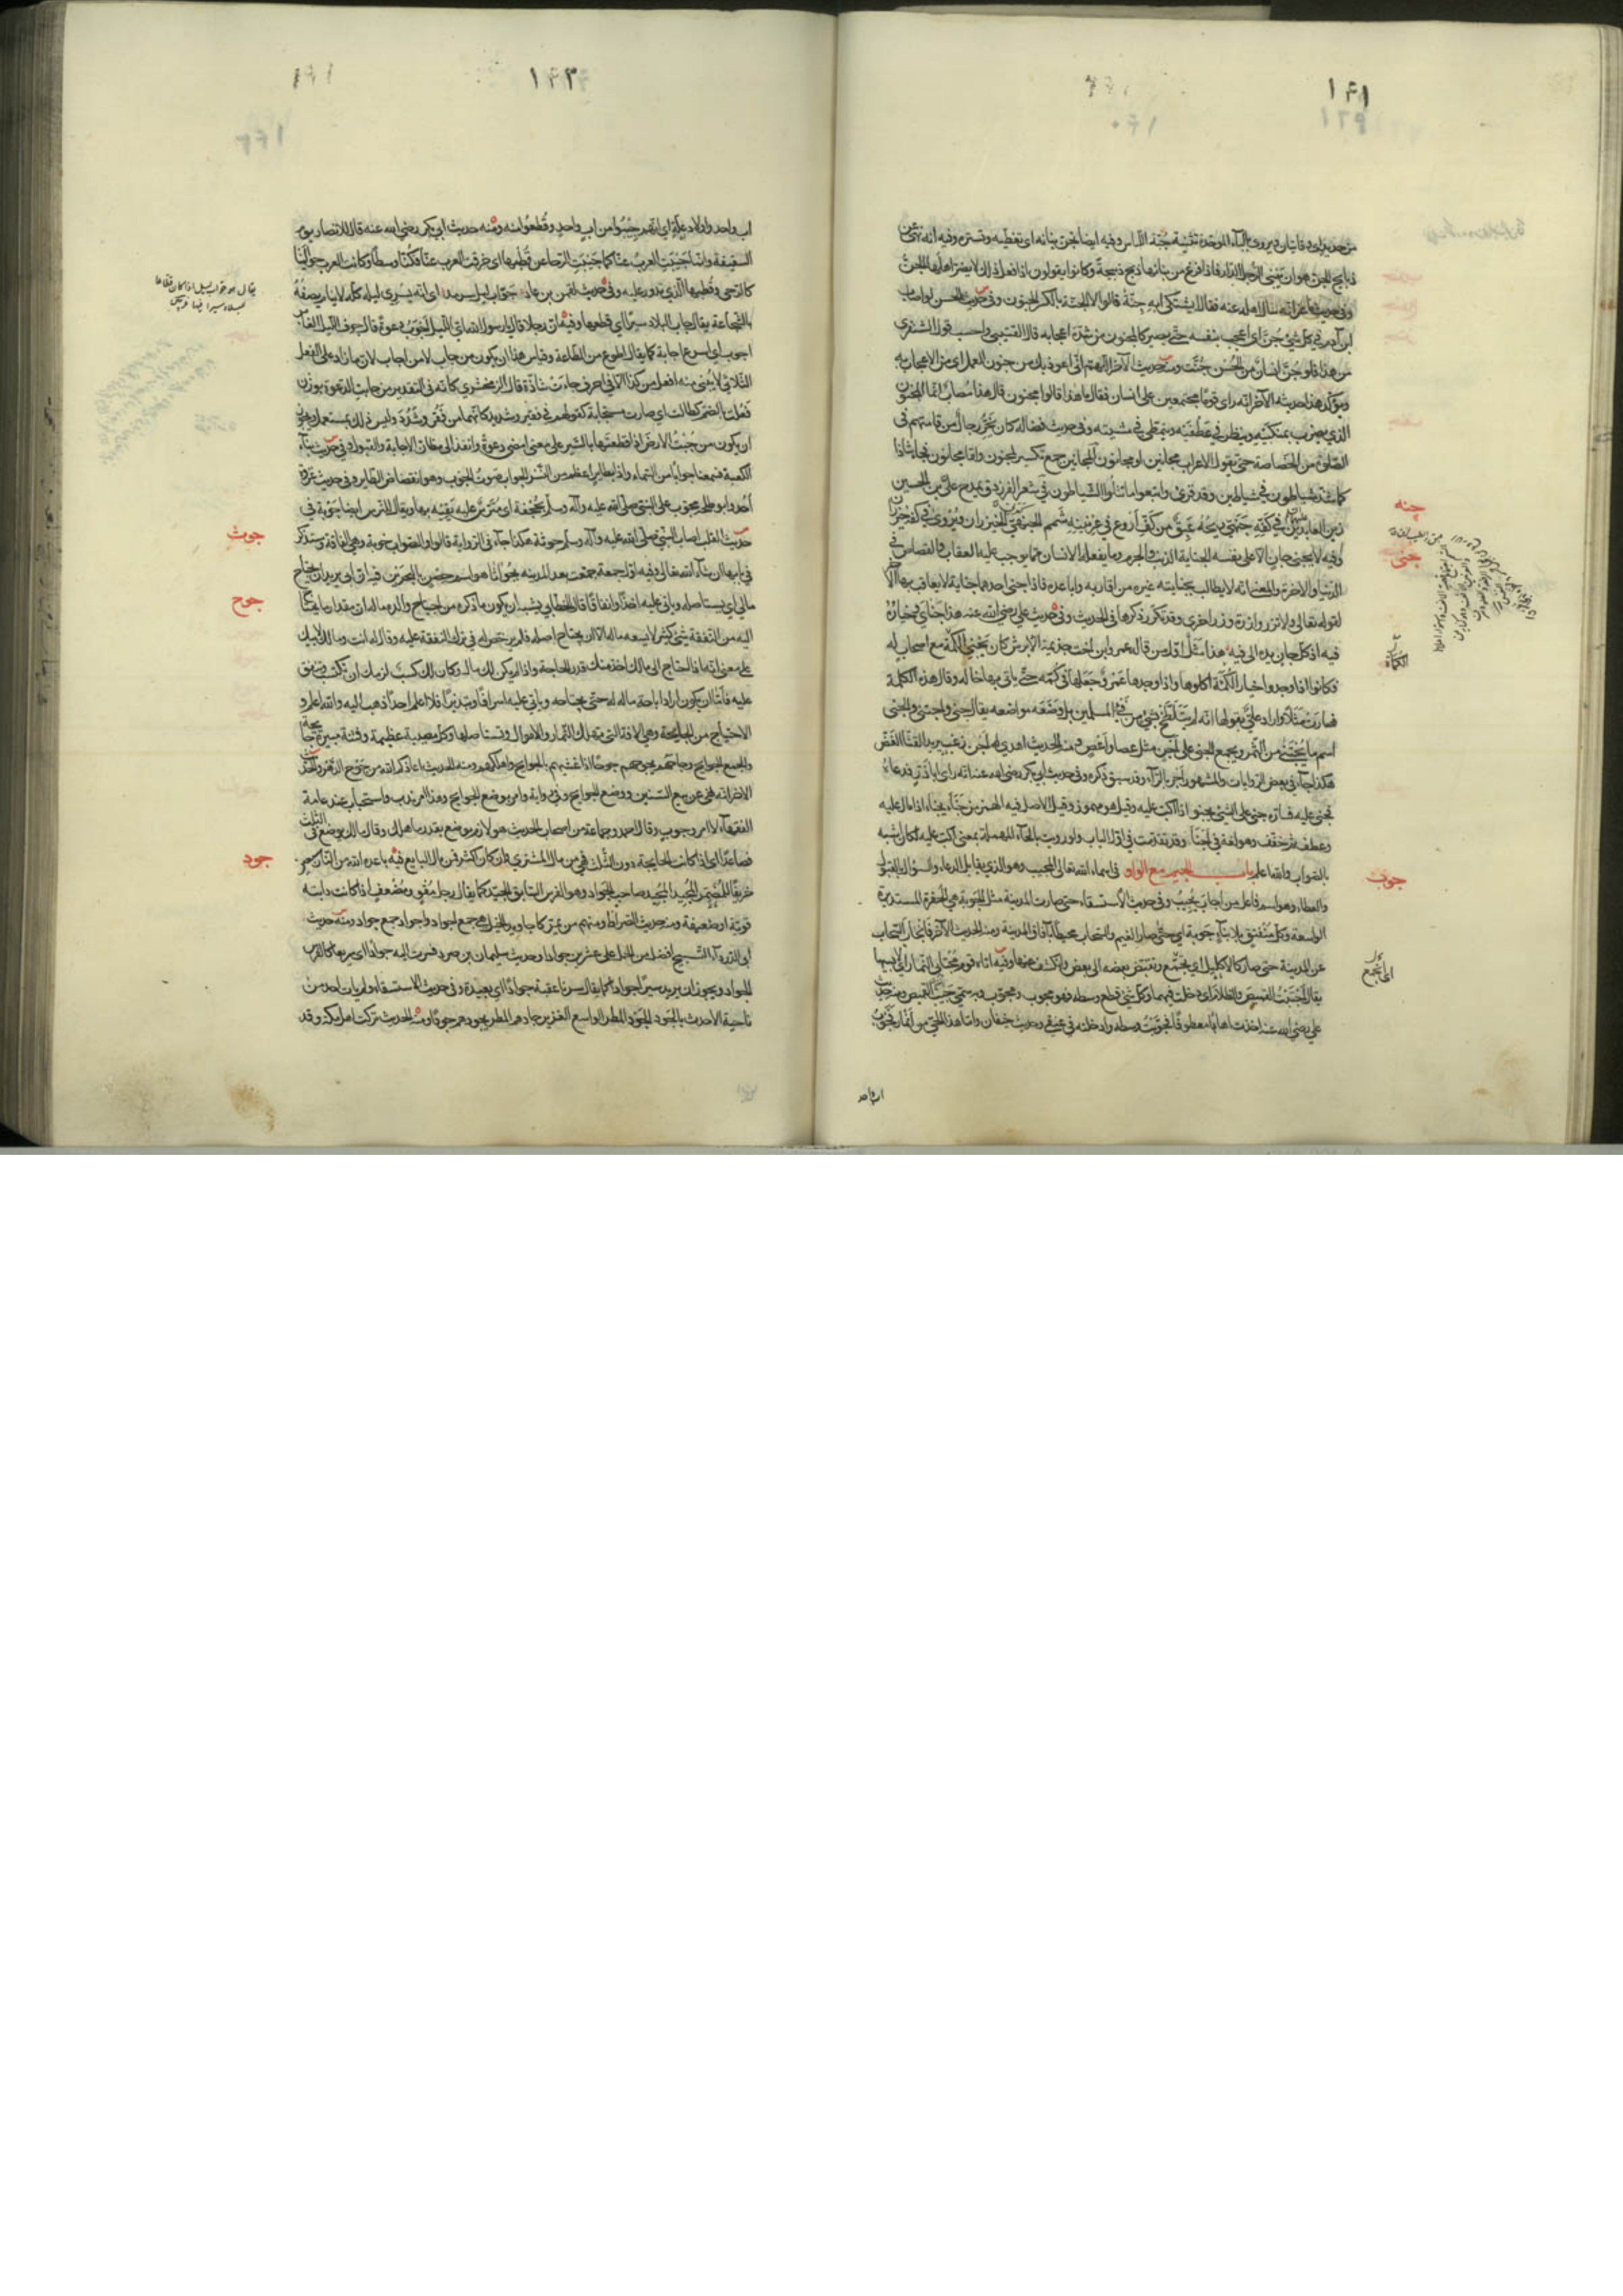 ١٤١
من حديد اى وقايتان ويروى بالباء الموحدة تثنية جنة اللباس وفيه ايضا تجن بنانه اى تغطيه وتستره وفيه انه نهى عن
ذبايح الجن هو ان يبنى الرجل الدار فاذا فرغ من بنائها ذبح ذبيحة وكانوا يقولون اذا فعل ذلك لا يضر اهلها الجن
وفى حديث ماعز انه سال اهله عنه فقال ايشتكى ام به جنة قالوا لا الجنة بالكسر الجنون وفى حديث الحسن لو اصاب
ابن آدم فى كل شئ جن اى اعجب بنفسه حتى يصير كالمجنون من شدة اعجابه قال القتيبى واحسب قول الشنفرى
من هذا فلو جن انسان من الحسن جنت ومنه حديثه الآخر اللهم انى اعوذ بك من جنون العمل اى من الاعجاب به
ويؤكد هذا حديثه الآخر انه راى قوما مجتمعين على انسان فقال ما هذا قالوا مجنون قال هذا مصاب انما المجنون
الذى يضرب بمنكبيه وينظر فى عطفيه ويتمطى فى مشيته وفى حديث فضالة كان يخر رجال من قامتهم فى
الصلوة من الخصاصة حتى يقول الاعراب مجانين او مجانون المجانين جمع تكسير لمجنون واما مجانون فشاذ
كما شذ شياطون فى شياطين وقد قرئ واتبعوا ما تتلوا الشياطون فى شعر الفرزدق يمدح على بن الحسين
زين العابدين فى كفه جنهى ريحه عبق من كف اروع فى عرنينه شمم الجنهى الخيزران ويروى فى كفه خيزران
وفيه لا يجنى جان الا على نفسه الجناية الذنب والجرم وما يفعله الانسان مما يوجب عليه العقاب والقصاص فى
الدنيا والآخرة والمعنى انه لا يطالب بجناية غيره من اقاربه واباعده فاذا جنى احدهما جناية لا يعاقب بها الآخر
لقوله تعالى ولا تزر وازرة وزر اخرى وقد تكرر ذكرها فى الحديث وفى حديث على رضى الله عنه هذا جناى وخياره
فيه اذ كل جان يده الى فيه هذا مثل اول من قاله عمرو ابن اخت جذيمة الابرش كان يجنى الكمأة مع اصحاب له
فكانوا اذا وجدوا خيار الكمأة اكلوها واذا وجدها عمرو جعلها فى كمه حتى ياتى بها خاله وقال هذه الكلمة
فصارت مثلا واراد على بقولها انه لم يتلطخ بشئ من فئ المسلمين بل وضعه مواضعه يقال جنى واجتنى والجنى
اسم ما يجتنى من الثمر ويجمع الجنى على اجن مثل عصا واعص ومنه الحديث اهدى له اجن زغب يريد القثاء الغض
هكذا جاء فى بعض الروايات والمشهور اجر بالراء وقد سبق ذكره وفى حديث ابى بكر رضى الله عنه انه راى ابا ذر فدعاه
فجنى عليه فساره جنى على الشئ يجنو اذا اكب عليه وقيل هو مهموز وقيل الاصل فيه الهمز من جنأ يجنأ اذا مال عليه
وعطف ثم خفف وهو لغة فى اجنأ وقد تقدمت فى اول الباب ولو رويت بالحاء المهملة بمعنى اكب عليه لكان اشبه
بالصواب والله اعلم باب الجيم مع الواو فى اسماء الله تعالى المجيب وهو الذى يقابل الدعاء والسؤال بالقبول
والعطاء وهو اسم فاعل من اجاب يجيب وفى حديث الاستسقاء حتى صارت المدينة مثل الجوبة هى الحفرة المستديرة
الواسعة وكل منفتق بلا بناء جوبة اى حتى صار الغيم والسحاب محيطا بآفاق المدينة ومنه الحديث الآخر فانجاب السحاب
عن المدينة حتى صار كالاكليل اى تجمع وتقبض بعضه الى بعض وانكشف عنها وفيه اتاه قوم مجتابى النمار اى لابسيها
يقال اجتبت القميص والظلام اى دخلت فيهما وكل شئ قطع وسطه فهو مجوب ومجوب وبه سمى جيب القميص ومنه حديث
على رضى الله عنه اخذت اهابا معطونا فجوبت وسطه وادخلته فى عنقى وحديث خيفان واما هذا الحى من انمار فجوب
اب واحد
جنه
جنى
الكمأة
جوب
اى تجمع
١٤٢
اب واحد واولاد علة اى انهم جيبوا من اب واحد وقطعوا منه ومنه حديث ابى بكر رضى الله عنه قال للانصار يوم
السقيفة وانما جيبت العرب عنا كما جيبت الرحا عن قطبها اى خرقت العرب عنا فكنا وسطا وكانت العرب حوالينا
كالرحى وقطبها الذى تدور عليه وفى حديث لقمن بن عاد جواب ليل سرمد اى انه يسرى ليله كله لا ينام يصفه
بالشجاعة يقال جاب البلاد سيرا اى قطعها وفيه ان رجلا قال يرسول الله اى الليل اجوب دعوة قال جوف الليل الغابر
اجوب اى اسرع اجابة كما يقال اطوع من الطاعة وقياس هذا ان يكون من جاب لا من اجاب لان ما زاد على الفعل
الثلاثى لا يبنى منه افعل من كذا الا فى احرف جاءت شاذة قال الزمخشرى كانه فى التقدير من جابت الدعوة بوزن
فعلت بالضم كطالت اى صارت مستجابة كقولهم فى فقير وشديد كانهما من فقر وشدد وليس ذلك بمستعمل ويجوز
ان يكون من جبت الارض اذا قطعتها بالسير على معنى امضى دعوة وانفذ الى مظان الاجابة والقبول وفى حديث بناء
الكعبة فسمعنا جوابا من السماء واذا بطاير اعظم من النسر الجواب صوت الجوب وهو انقضاض الطاير وفى حديث غزوة
احد وابو طلحة مجوب على النبى صلى الله عليه وآله وسلم بحجفة اى مترس عليه يقيه بها ويقال للترس ايضا جوبة فى
حديث التلب اصاب النبى صلى الله عليه وآله وسلم جوثة هكذا جاء فى الرواية قالوا والصواب خوبة وهى الفاقة وستذكر
فى بابها ان شاء الله تعالى وفيه اول جمعة جمعت بعد المدينة بجواثا هو اسم حصن بالبحرين فيه ان ابى يريد ان يجتاح
مالى اى يستاصله وياتى عليه اخذا وانفاقا قال الخطابى يشبه ان يكون ما ذكره من اجتياح والده ماله ان مقدار ما يحتاج
اليه من النفقة شئ كثير لا يسعه ماله الا ان يجتاح اصله فلم يرخص له فى ترك النفقة عليه وقال له انت ومالك لابيك
على معنى انه اذا احتاج الى مالك اخذ منك قدر الحاجة واذا لم يكن لك مال وكان لك كسب لزمك ان تكتسب وتنفق
عليه فاما ان يكون اراد اباحة ماله له حتى يجتاحه وياتى عليه اسرافا وتبذيرا فلا اعلم احدا ذهب اليه والله اعلم و
الاجتياح من الجايحة وهى الآفة التى تهلك الثمار والاموال وتستاصلها وكل مصيبة عظيمة وفتنة مبيرة جائحة
والجمع الجوايح وجاحهم يجوحهم جوحا اذا غشيهم بالجوايح واهلكهم ومنه الحديث اعاذكم الله من جوح الدهر والحديث
الآخر انه نهى عن بيع السنين ووضع الجوايح وفى رواية وامر بوضع الجوايح وهذا امر ندب واستحباب عند عامة
الفقهاء لا امر وجوب وقال احمد وجماعة من اصحاب الحديث هو لازم يوضع بقدر ما هلك وقال مالك يوضع فى الثلث
فصاعدا اى اذا كانت الجايحة دون الثلث فهى من مال المشترى وان كان اكثر فمن مال البايع فيه باعده الله من النار سبعين
خريفا للمضمر المجيد المجيد صاحب الجواد وهو الفرس السابق الجيد كما يقال رجل مقو ومضعف اذا كانت دابته
قوية او ضعيفة ومنه حديث الصراط ومنهم من يمر كاجاويد الخيل هى جمع اجواد واجواد جمع جواد ومنه حديث
ابى الدرداء التسبيح افضل من الحمل على عشرين جوادا وحديث سليمان بن صرد فسرت اليه جوادا اى سريعا كالفرس
الجواد ويجوز ان يريد سيرا جوادا كما يقال سرنا عقبة جوادا اى بعيدة وفى حديث الاستسقاء ولم يات احد من
ناحية الا حدث بالجود الجود المطر الواسع الغزير جادهم المطر يجودهم جودا ومنه الحديث تركت اهل مكة وقد
جوث
جوح
جود